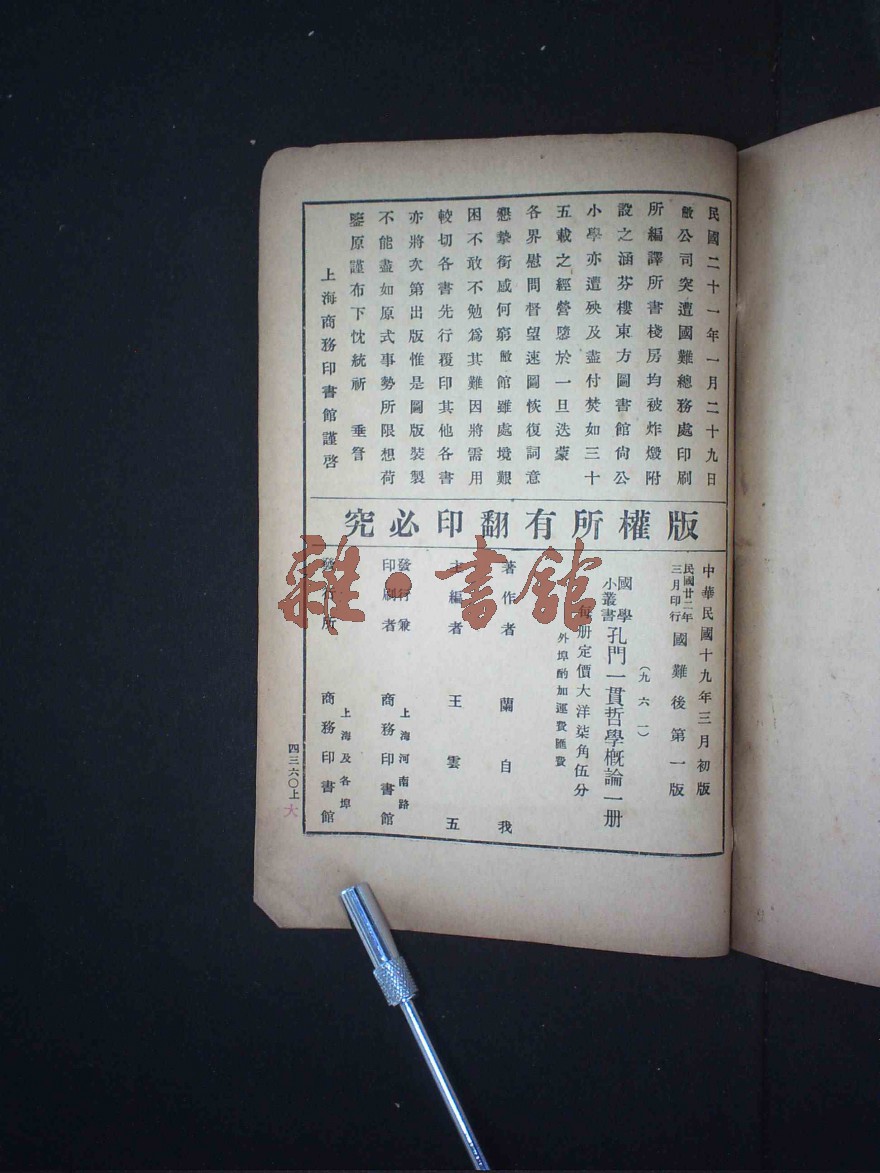 民國二十一年一月二十九日
敝公司突遭國難總務處印刷
所編譯所書棧房均被炸燬附
設之涵芬樓東方圖書館尙公
小學亦遭殃及盡付焚如三十
五載之經營墮於一旦迭蒙
各界慰問督望速圖恢復詞意
懇摯銜感何窮敝館雖處境艱
困不敢不勉爲其難因將需用
較切各書先行覆印其他各書
亦將次第出版惟是圖版裝製
不能盡如原式事勢所限想荷
鑒原謹布下忱統祈 垂詧
上海商務印書館謹啓
版權所有翻印必究
中華民國十九年三月初版
民國廿二年三月印行 國難後第一版
(九六一)
國學小叢書 孔門一貫哲學概論一册
每册定價大洋柒角伍分
外埠酌加運費匯費
著作者 蘭自我
主編者 王雲五
發行兼印刷者 上海河南路 商務印書館
發行所 上海及各埠 商務印書館
四三六〇上
大
雜·書館